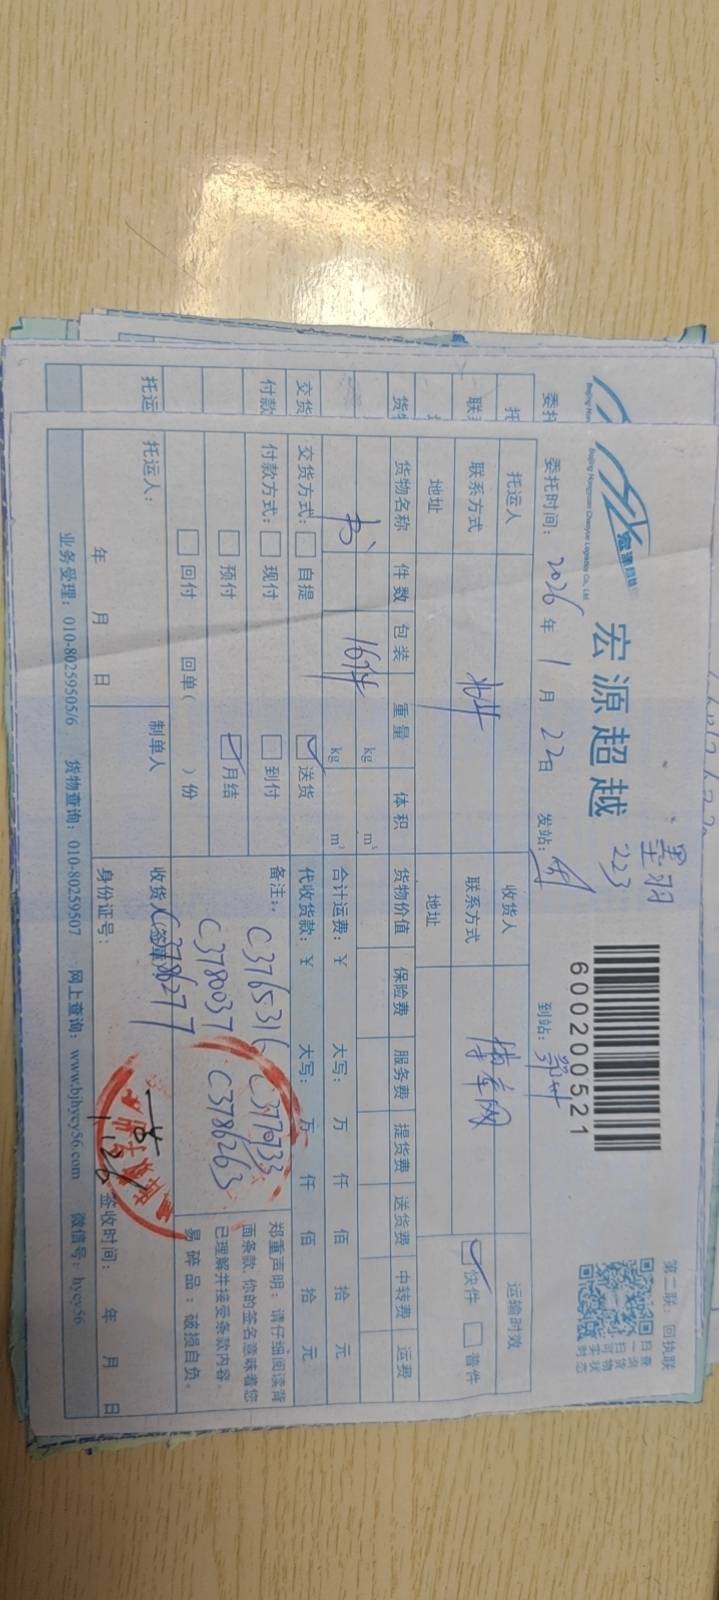 宏源超越
Beijing Hongyuan Chaoyue Logistics Co., Ltd
宏源超越
墨羽
223
600200521
第二联：回执联
扫一扫
查货物
可实时
状态
委托时间：2026年1月22日 发站： 到站：鄂州
托运人 收货人 运输时效
联系方式 北牛 联系方式 博库网 快件 普件
地址 地址
货物名称 件数 包装 重量 体积 货物价值 保险费 服务费 提货费 送货费 中转费 运费
kg m³
书 16件 kg m³ 合计运费：¥ 大写： 万 仟 佰 拾 元
交货方式： 自提 送货 代收货款：¥ 大写： 万 仟 佰 拾 元
付款方式： 现付 到付 备注： C3765316 C377933
预付 月结 C378037 C3786263
回付 回单( )份 C3786277
郑重声明：请仔细阅读背
面条款，你的签名意味着您
已理解并接受条款内容。
易碎品：破损自负。
托运人： 制单人 收货人(签章)
年 月 日 身份证号： 1.26 签收时间： 年 月 日
业务受理：010-80259505/6 货物查询：010-80259507 网上查询：www.bjhycy56.com 微信号：hycy56
委托
托
联系
货物
交货
付款
托运